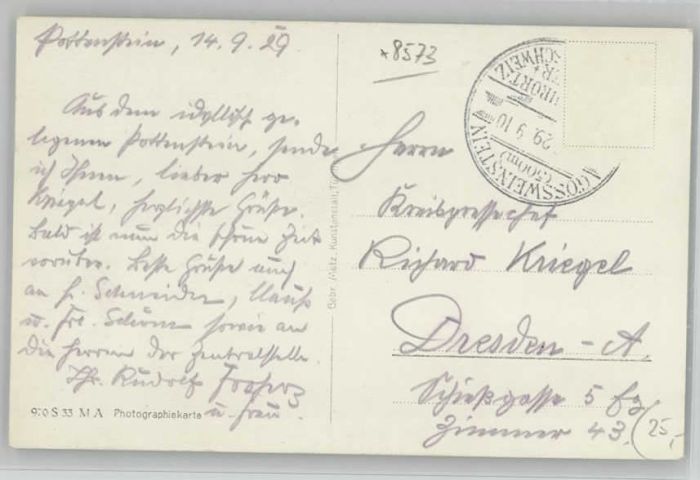 Pottenstein, 14.9.29
Aus dem idyllisch ge-
legenen Pottenstein, sende
ich Ihnen, lieber Herr
Kriegel, herzlichste Grüße.
Bald ist nun die schöne Zeit
vorüber. Beste Grüße auch
an H. Schneider,
u. Frl. Schöne sowie an
die Herren der Zentralstelle.
Ihr Rudolf
u. Frau.
970 S 33 M A Photographiekarte
Gebr. Metz, Kunstanstalt, Tü
*8573
GÖSSWEINSTEIN
(500m)
29. 9. 10
SCHWEIZ
Herrn
Kreispressechef
Richard Kriegel
Dresden - A.
Schießgasse 5
Zimmer 43.
25,-